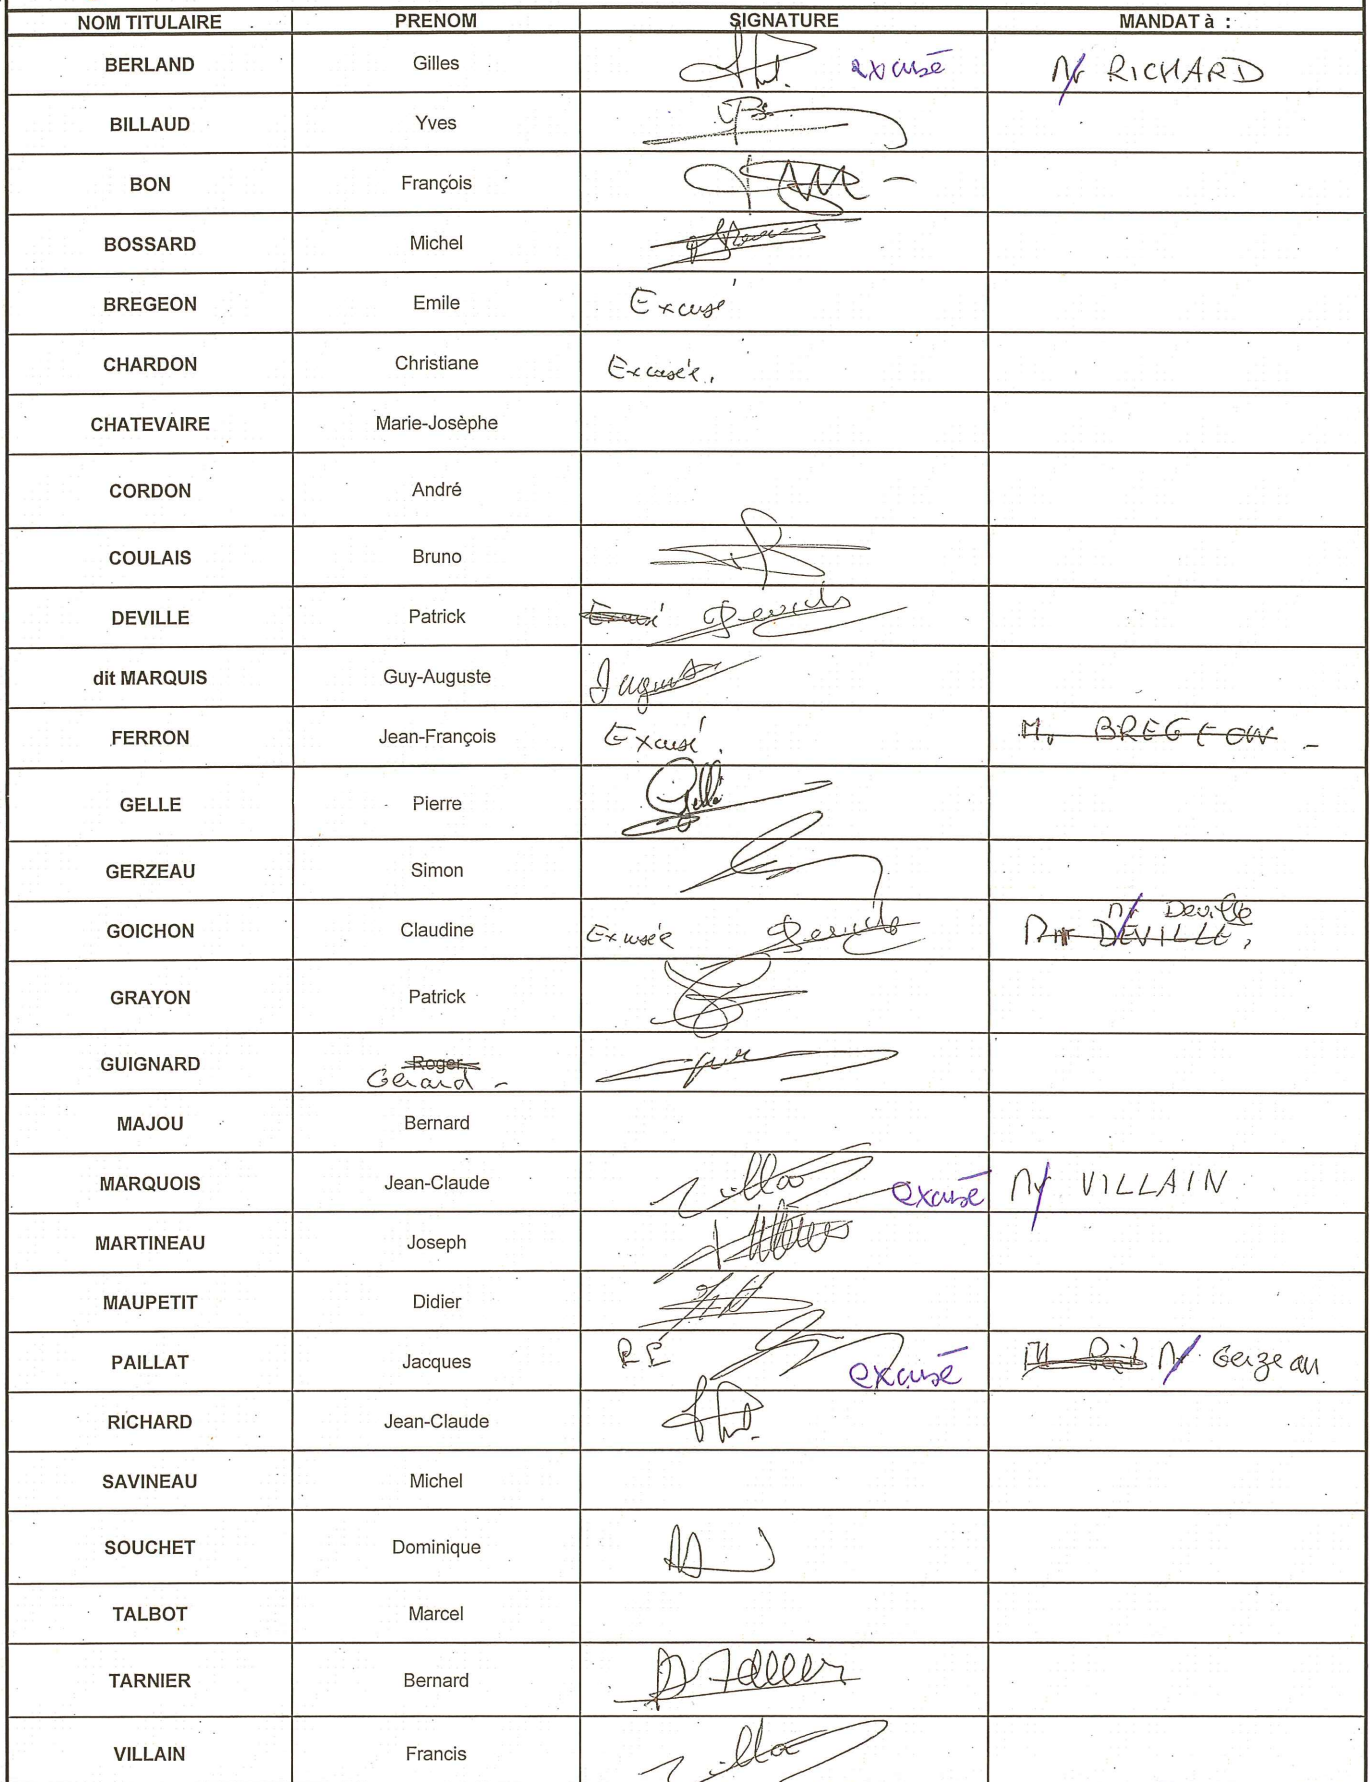 NOM TITULAIRE PRENOM SIGNATURE MANDAT à :
BERLAND Gilles excusé Mr RICHARD
BILLAUD Yves
BON François
BOSSARD Michel
BREGEON Emile Excusé
CHARDON Christiane Excusée.
CHATEVAIRE Marie-Josèphe
CORDON André
COULAIS Bruno
DEVILLE Patrick Excusé
dit MARQUIS Guy-Auguste
FERRON Jean-François Excusé. M. BREGEON
GELLE Pierre
GERZEAU Simon
Mr Deville
GOICHON Claudine Excusée DEVILLE,
GRAYON Patrick
GUIGNARD Roger
Gérard
MAJOU Bernard
MARQUOIS Jean-Claude excusé Mr VILLAIN
MARTINEAU Joseph
MAUPETIT Didier
PAILLAT Jacques excusé Mr Gerzeau
RICHARD Jean-Claude
SAVINEAU Michel
SOUCHET Dominique
TALBOT Marcel
TARNIER Bernard
VILLAIN Francis